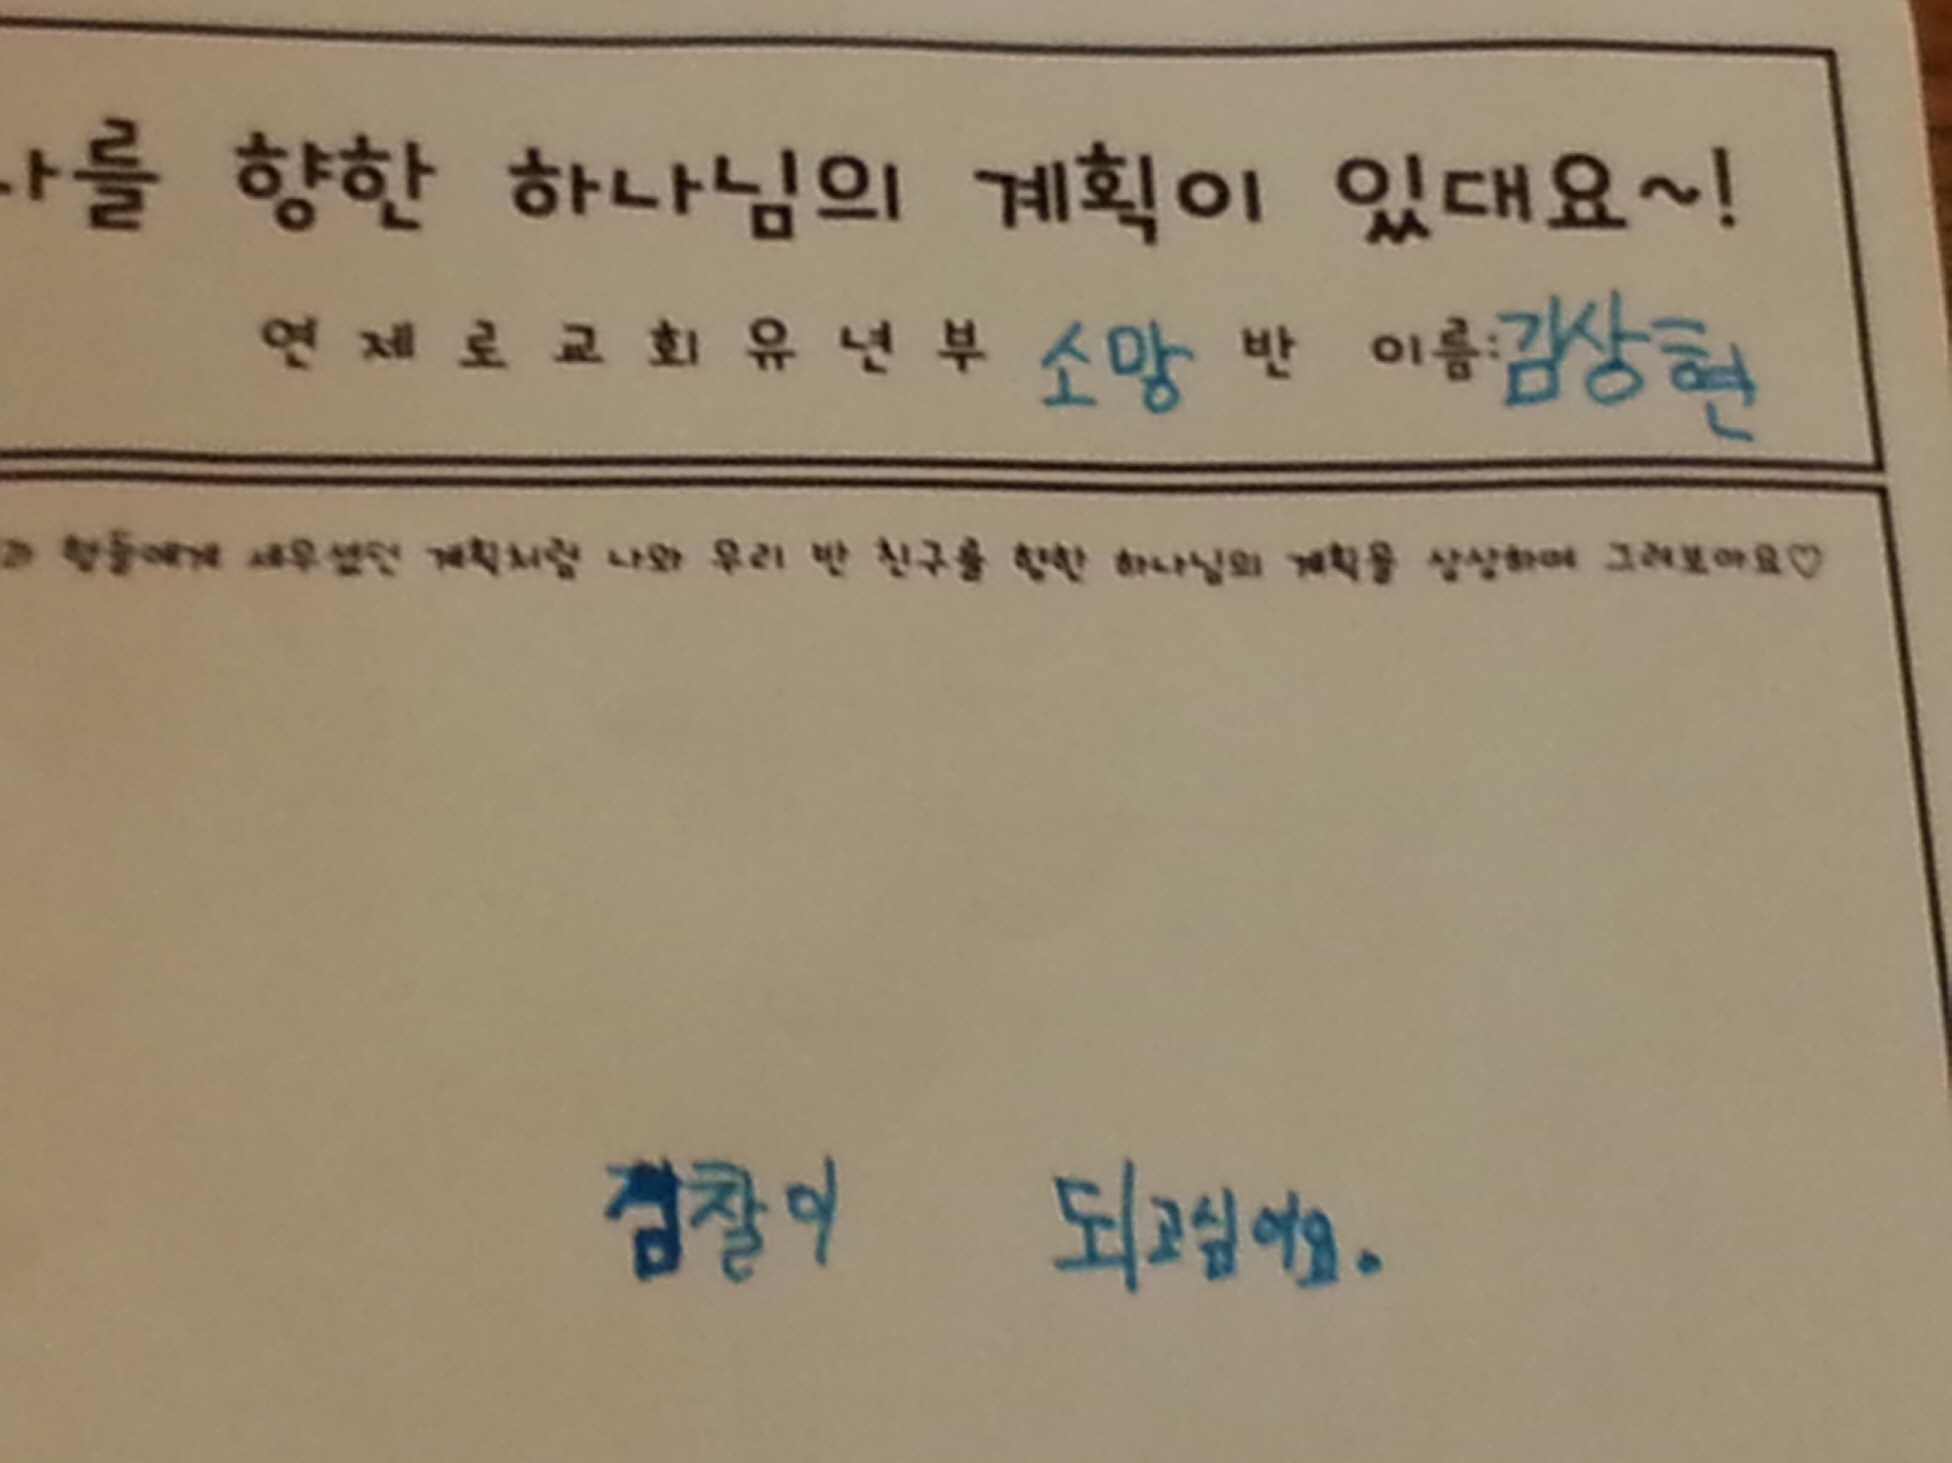 나를 향한 하나님의 계획이 있대요~!
연제로교회유년부 소망 반 이름:김상현
형들에게 세우셨던 계획처럼 나와 우리 반 친구를 향한 하나님의 계획을 상상하며 그려보아요♡
검찰이 되고십어요.